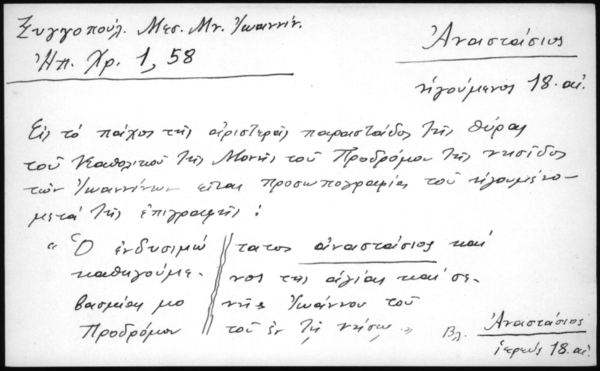 Ξυγγοπούλ. Μεσ. Μν. Ἰωαννίν.
Ἠπ. Χρ. 1, 58
Ἀναστάσιος
ἡγούμενος 18. αἰ.
Εἰς τὸ πάχος τῆς ἀριστερᾶς παραστάδος τῆς θύρας
τοῦ Καθολικοῦ τῆς Μονῆς τοῦ Προδρόμου τῆς νησίδος
τῶν Ἰωαννίνων εἶναι προσωπογραφία τοῦ ἡγουμένου
μετὰ τῆς ἐπιγραφῆς :
"Ὁ ἐνδυσιμώ // τατος ἀναστάσιος καὶ
καθηγούμε- // νος της ἁγίας καὶ σε-
βασμίας μο // νῆς Ἰωάννου τοῦ
Προδρόμου // τοῦ ἐν τῇ νήσῳ"
Βλ. Ἀναστάσιος
ἱερεύς 18. αἰ.